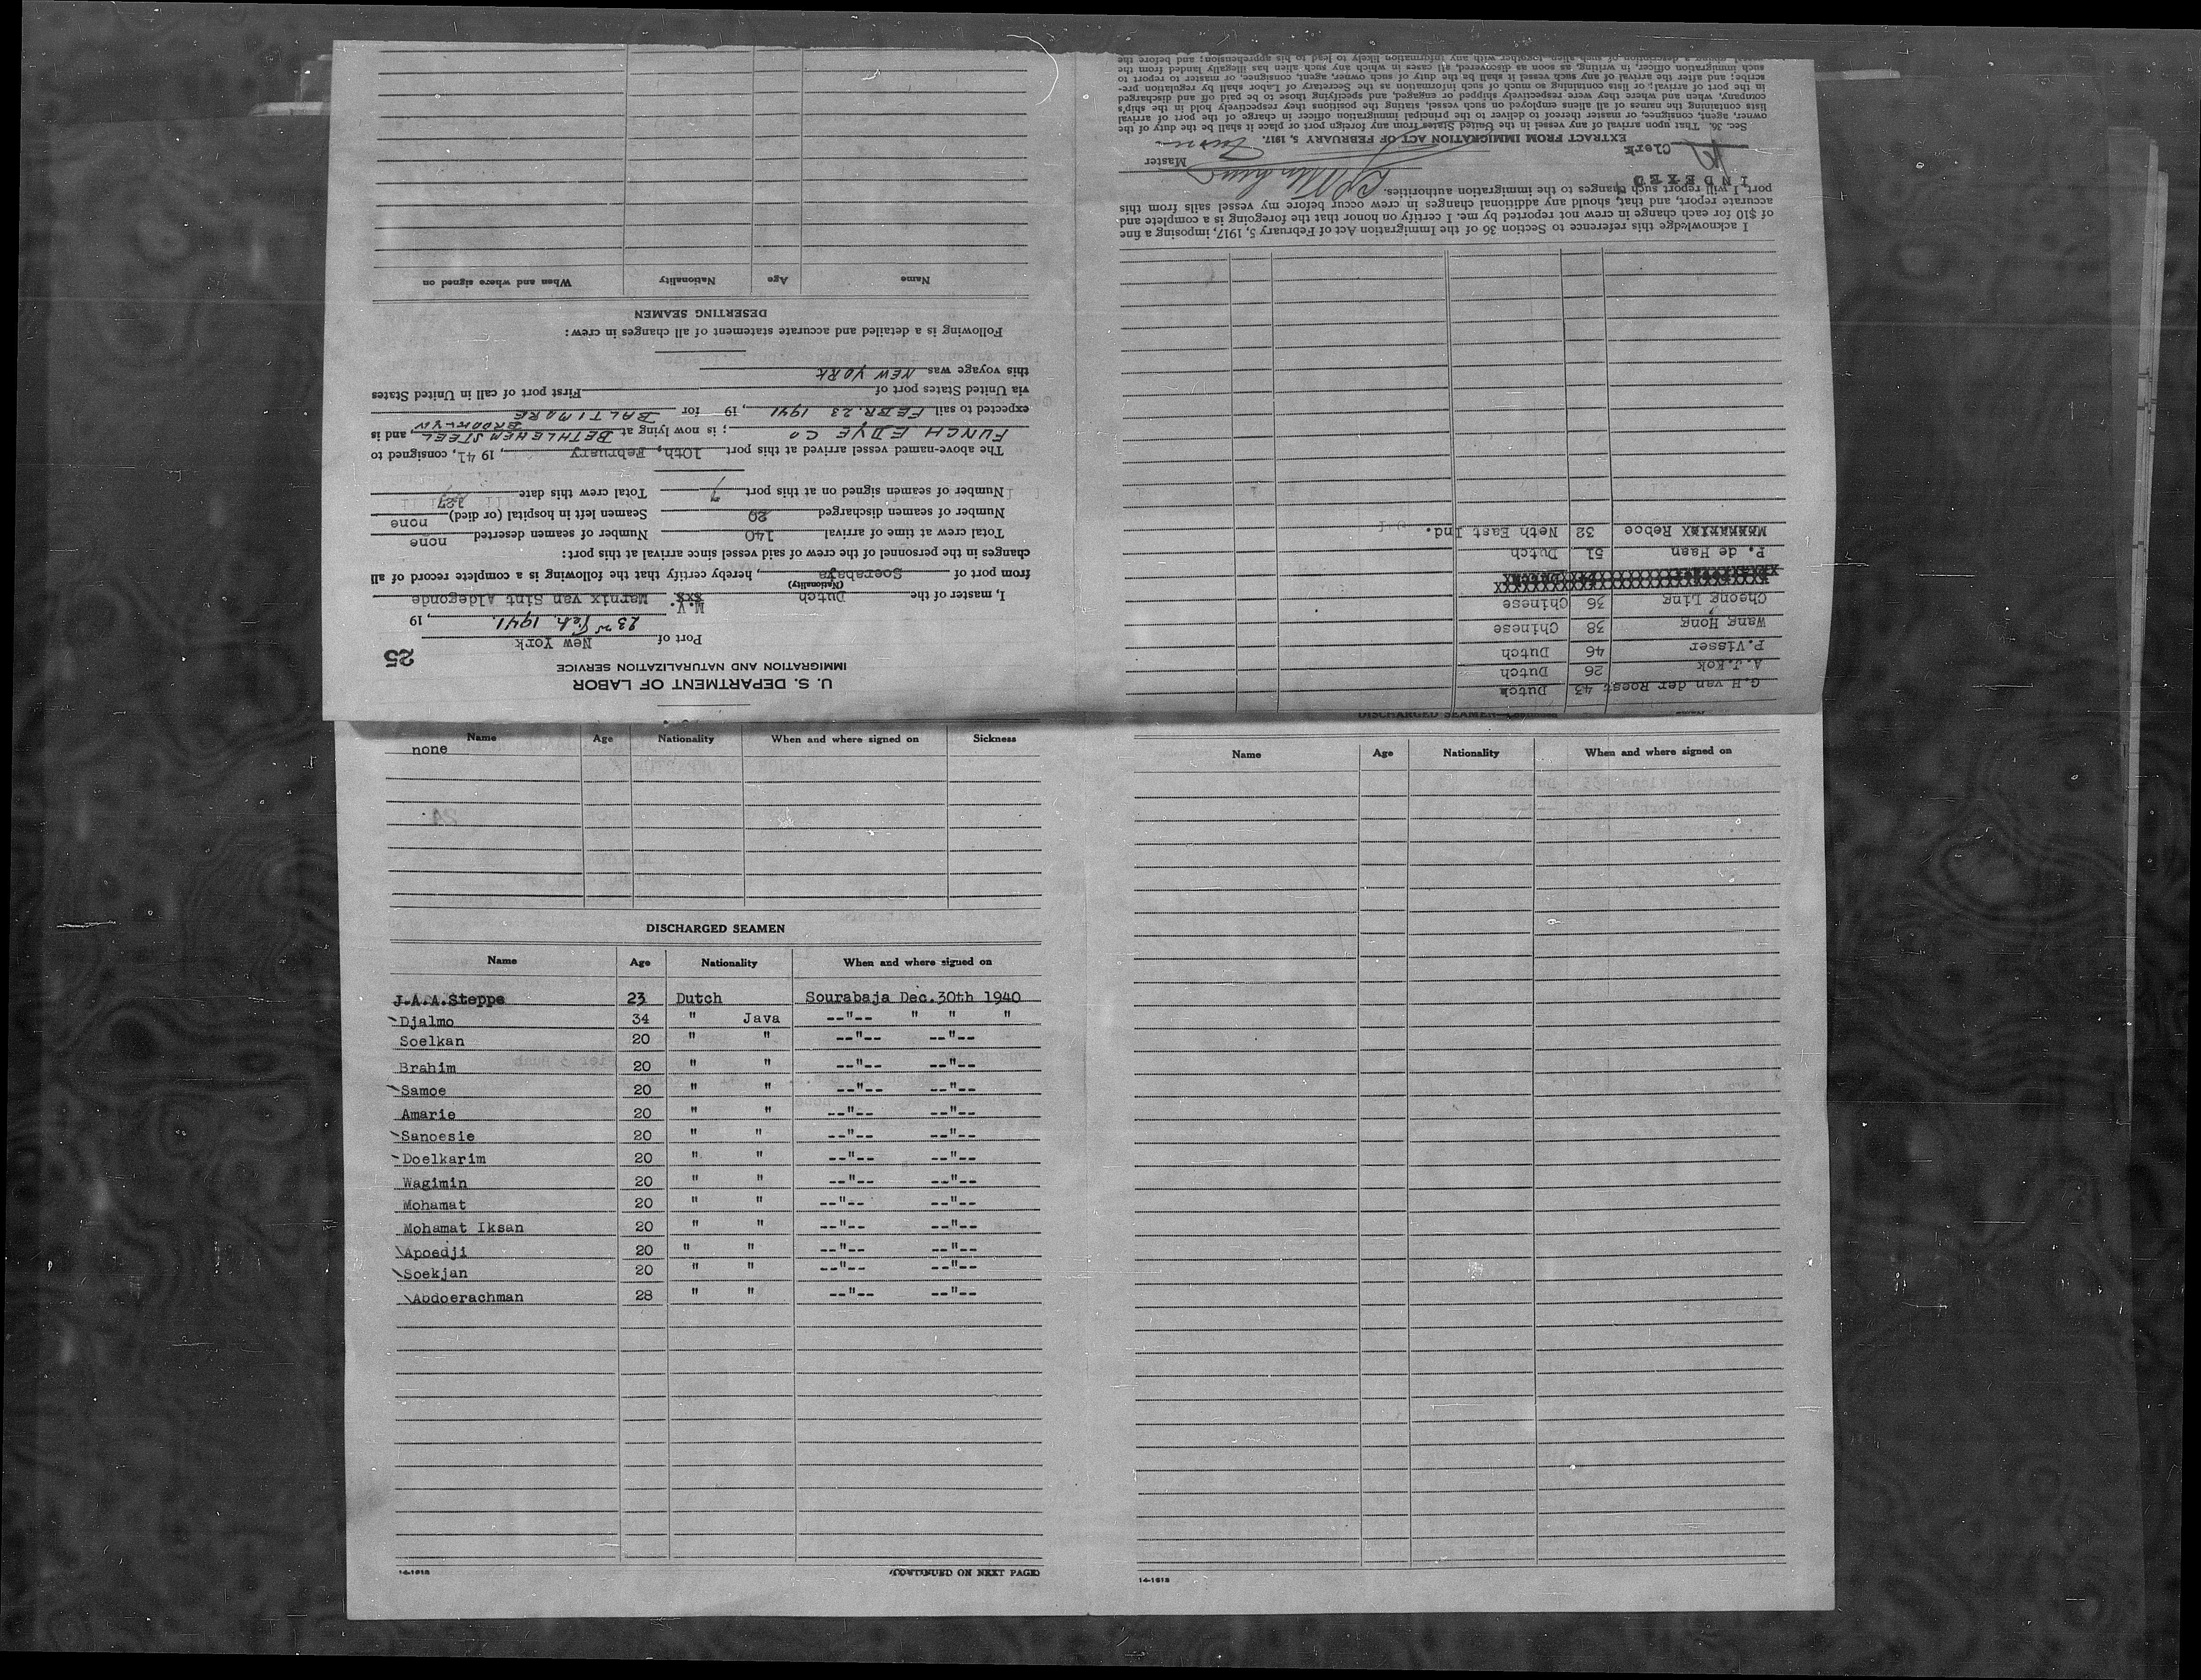 U. S. DEPARTMENT OF LABOR
IMMIGRATION AND NATURALIZATION SERVICE
25
Port of New York
23rd Feb 1941, 19
I, master of the Dutch M.V. Marnix van Sint Aldegonde
(Nationality)
from port of Soerabaya, hereby certify that the following is a complete record of all
changes in the personnel of the crew of said vessel since arrival at this port:
Total crew at time of arrival 140 Number of seamen deserted none
Number of seamen discharged 20 Seamen left in hospital (or died) none
Number of seamen signed on at this port 7 Total crew this date 127
The above-named vessel arrived at this port 10th, February, 19 41, consigned to
FUNCH EDYE CO; is now lying at BETHLEHEM STEEL BROOKLYN, and is
expected to sail FEBR. 23 1941, 19 for BALTIMORE
via United States port of First port of call in United States
this voyage was NEW YORK
Following is a detailed and accurate statement of all changes in crew:
DESERTING SEAMEN
Name Age Nationality When and where signed on
G.H van der Roest 43 Dutch
A.J.Kok 26 Dutch
P.Visser 46 Dutch
Wang Hong 38 Chinese
Cheong Ling 36 Chinese
P. de Haan 51 Dutch
Reboe 32 Neth East Ind.
I acknowledge this reference to Section 36 of the Immigration Act of February 5, 1917, imposing a fine
of $10 for each change in crew not reported by me. I certify on honor that the foregoing is a complete and
accurate report, and that, should any additional changes in crew occur before my vessel sails from this
port I will report such changes to the immigration authorities.
INDEXED
Master
Clerk
EXTRACT FROM IMMIGRATION ACT OF FEBRUARY 5, 1917.
Sec. 36. That upon arrival of any vessel in the United States from any foreign port or place it shall be the duty of the
owner, agent, consignee, or master thereof to deliver to the principal immigration officer in charge of the port of arrival
lists containing the names of all aliens employed on such vessel, stating the positions they respectively hold in the ship's
company, when and where they were respectively shipped or engaged, and specifying those to be paid off and discharged
in the port of arrival; or lists containing so much of such information as the Secretary of Labor shall by regulation pre-
scribe; and after the arrival of any such vessel it shall be the duty of such owner, agent, consignee, or master to report to
such immigration officer, in writing, as soon as discovered, all cases in which any such alien has illegally landed from the
vessel, giving a description of such alien, together with any information likely to lead to his apprehension; and before the
Name Age Nationality When and where signed on Sickness
none
DISCHARGED SEAMEN
Name Age Nationality When and where signed on
J.A.A.Steppe 23 Dutch Sourabaja Dec.30th 1940
Djalmo 34 " Java --"-- " " "
Soelkan 20 " " --"-- --"--
Brahim 20 " " --"-- --"--
Samoe 20 " " --"-- --"--
Amarie 20 " " --"-- --"--
Sanoesie 20 " " --"-- --"--
Doelkarim 20 " " --"-- --"--
Wagimin 20 " " --"-- --"--
Mohamat 20 " " --"-- --"--
Mohamat Iksan 20 " " --"-- --"--
Apoedji 20 " " --"-- --"--
Soekjan 20 " " --"-- --"--
Abdoerachman 28 " " --"-- --"--
14-1618 (CONTINUED ON NEXT PAGE)
DISCHARGED SEAMEN—Continued
Name Age Nationality When and where signed on
14-1618